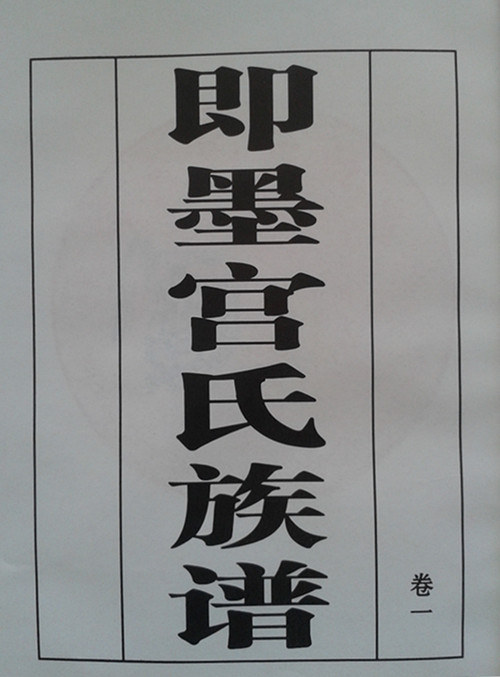 即墨宫氏族谱
卷一